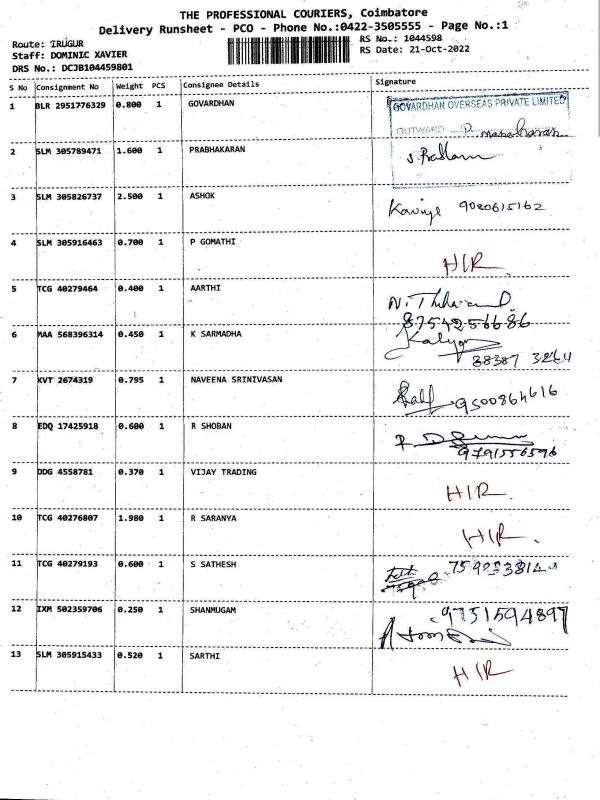 THE PROFESSIONAL COURIERS, Coimbatore
Delivery Runsheet - PCO - Phone No.:0422-3505555 - Page No.:1
Route: IRUGUR
Staff: DOMINIC XAVIER
DRS No.: DCJB104459801
RS No.: 1044598
RS Date: 21-Oct-2022
S No Consignment No Weight PCS Consignee Details Signature
1 BLR 2951776329 0.800 1 GOVARDHAN GOVARDHAN OVERSEAS PRIVATE LIMITED
OUTWARD P. manoharan
2 SLM 305789471 1.600 1 PRABHAKARAN
3 SLM 305826737 2.500 1 ASHOK 9080615162
4 SLM 305916463 0.700 1 P GOMATHI HIR.
5 TCG 40279464 0.400 1 AARTHI
8754256686
6 MAA 568396314 0.450 1 K SARMADHA
38387 3264
7 KVT 2674319 0.795 1 NAVEENA SRINIVASAN 9500864616
8 EDQ 17425918 0.600 1 R SHOBAN
9791556596
9 DDG 4558781 0.370 1 VIJAY TRADING HIR.
10 TCG 40276807 1.980 1 R SARANYA HIR.
11 TCG 40279193 0.600 1 S SATHESH
12 IXM 502359706 0.250 1 SHANMUGAM 9751594897
13 SLM 305915433 0.520 1 SARTHI HIR